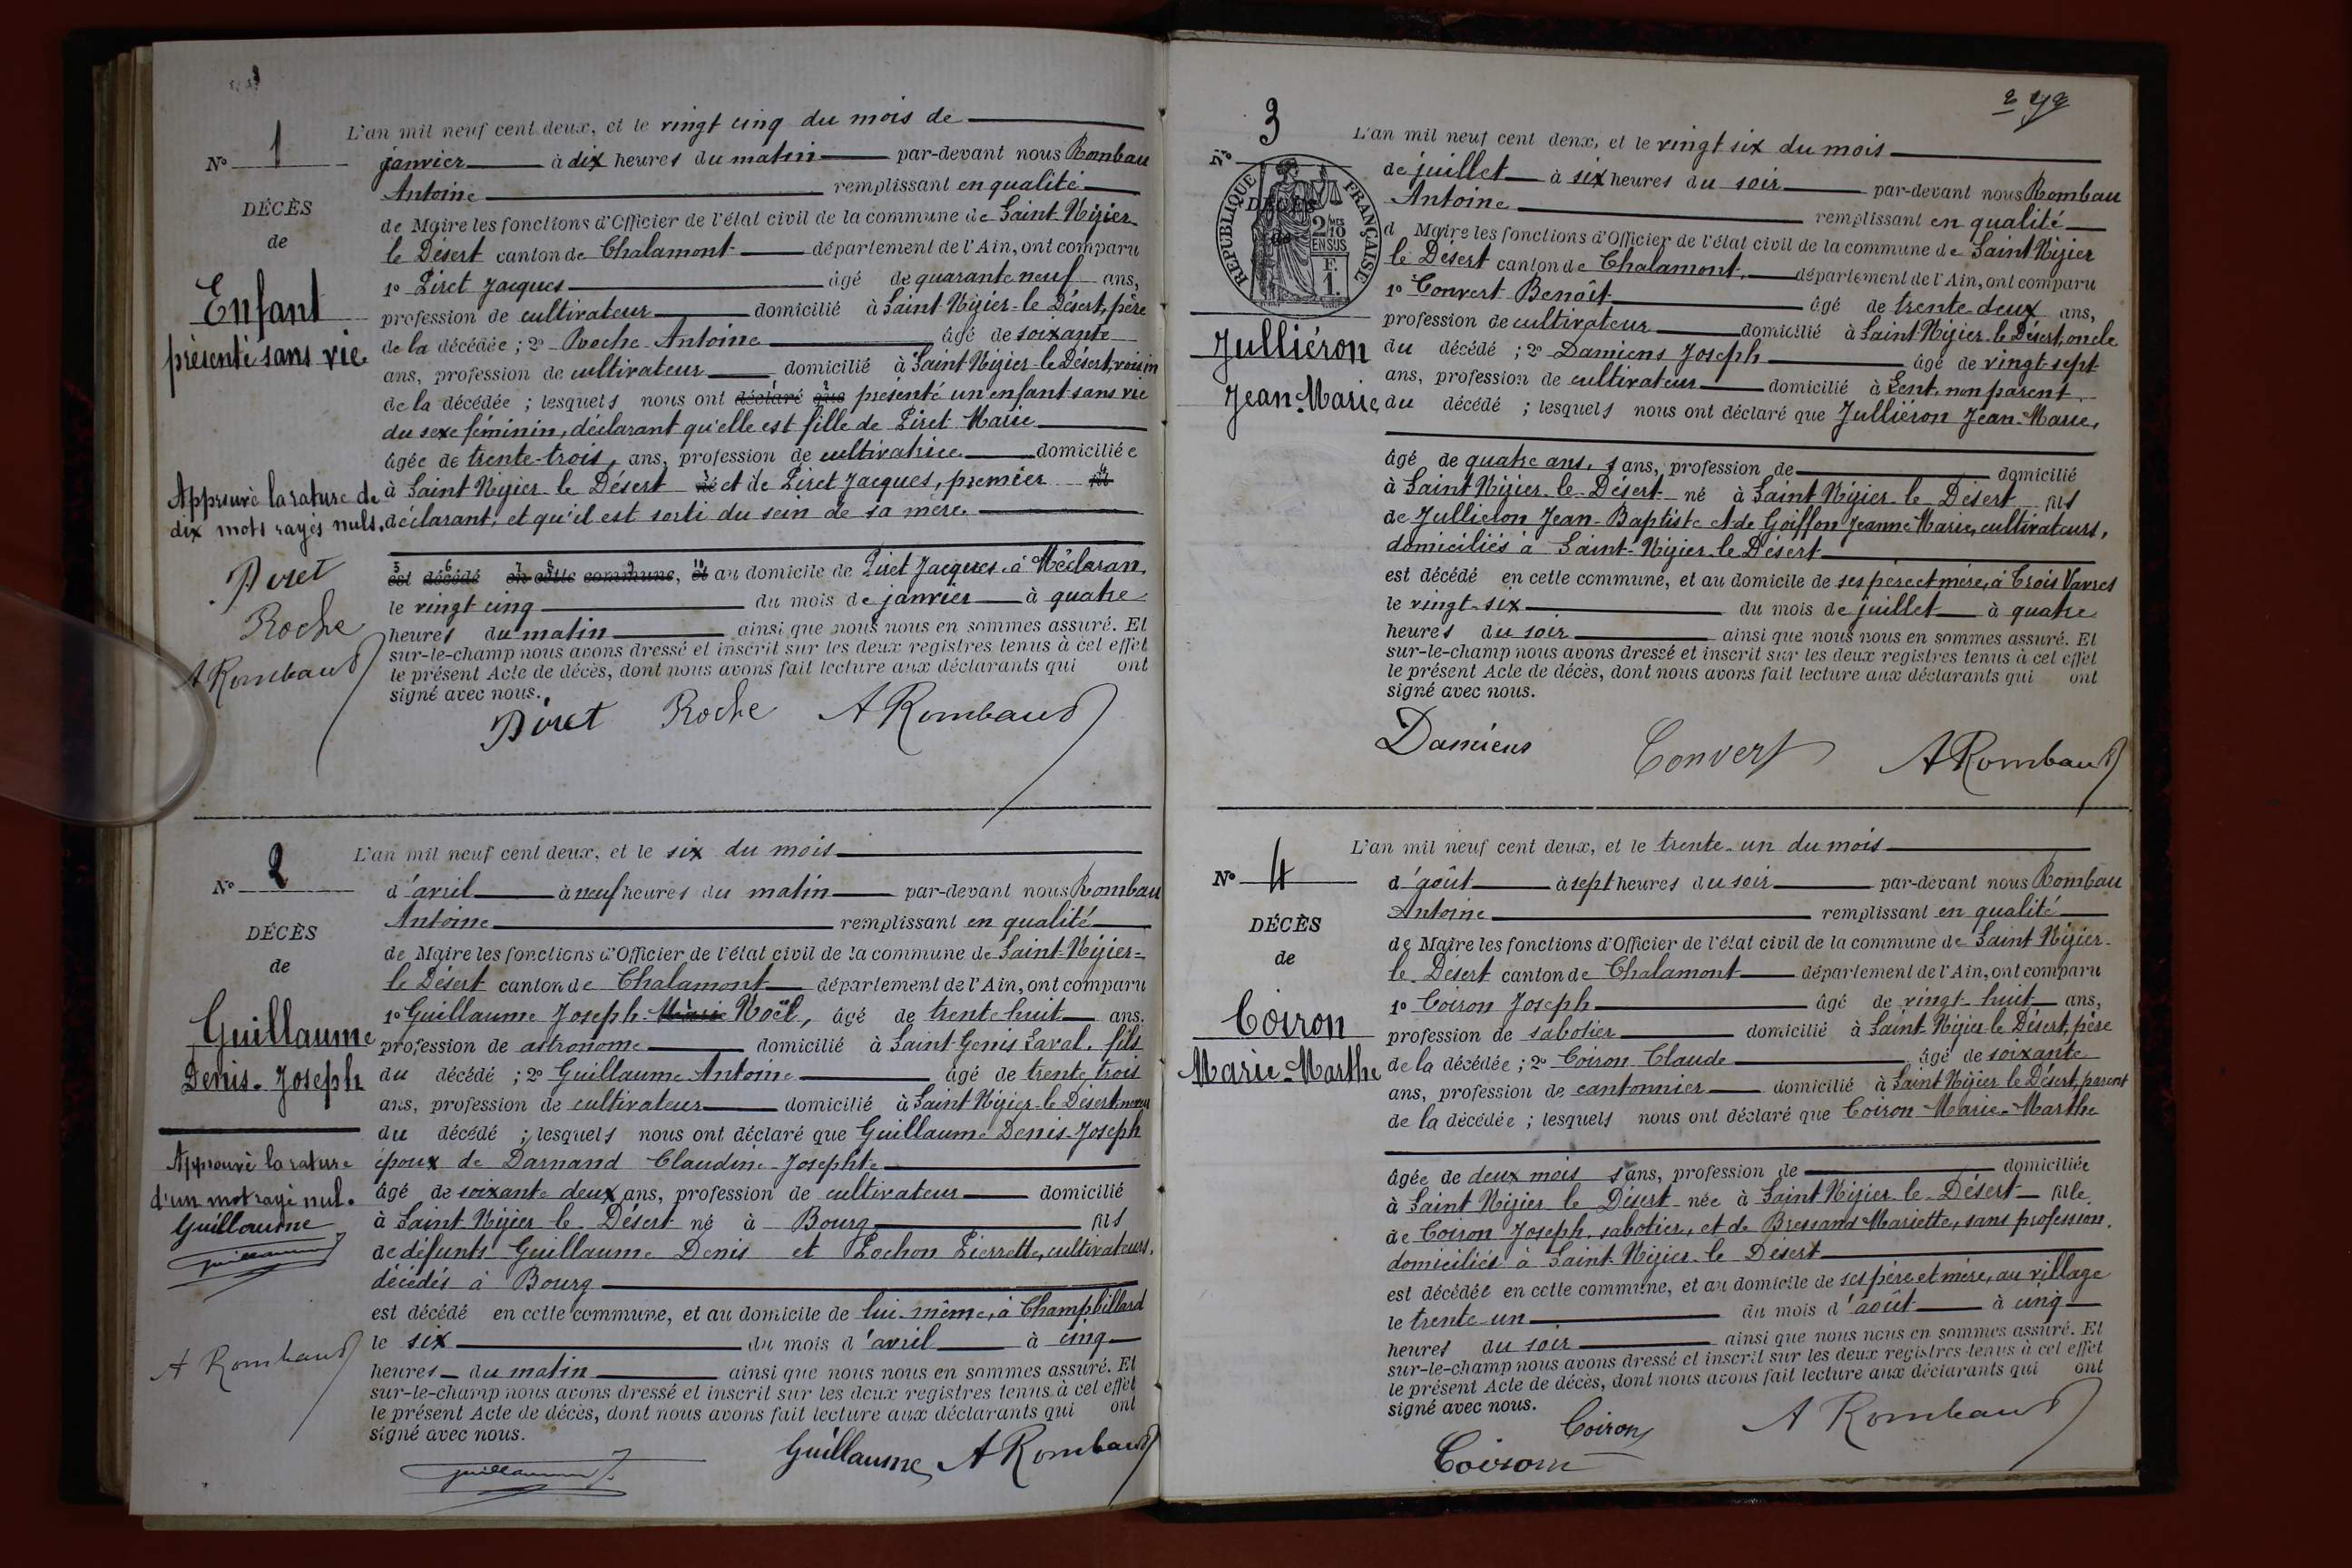 1
L'an mil neuf cent deux, et le vingt cinq du mois de
Nº
janvier à dix heures du matin par-devant nous Rombau
Antoine remplissant en qualité
DÉCÈS
de Maire les fonctions d'Officier de l'état civil de la commune de Saint-Nizier
de
le Désert canton de Chalamont département de l'Ain, ont comparu
1º Piret Jacques âgé de quarante neuf ans,
Enfant
profession de cultivateur domicilié à Saint-Nizier-le Désert, père
présenté sans vie
de la décédée ; 2º Roche Antoine âgé de soixante
ans, profession de cultivateur domicilié à Saint-Nizier-le Désert, voisin
de la décédée ; lesquels nous ont déclaré que présenté un enfant sans vie
du sexe féminin, déclarant qu'elle est fille de Piret Marie
âgée de trente-trois, ans, profession de cultivatrice domiciliée
à Saint Nizier le Désert né et de Piret Jacques, premier fil
Approuvé la rature de
dix mots rayés nuls.
déclarant, et qu'il est sorti du sein de sa mère.
Piret
est décédé en cette commune, et au domicile de Piret Jacques à
le vingt cinq du mois de janvier à quatre
Roche
heures du matin ainsi que nous nous en sommes assuré. Et
sur-le-champ nous avons dressé et inscrit sur les deux registres tenus à cet effet
A Rombaud
le présent Acte de décès, dont nous avons fait lecture aux déclarants qui ont
signé avec nous.
Piret Roche A Rombaud
L'an mil neuf cent deux, et le six du mois
Nº 2
d'avril à neuf heures du matin par-devant nous Rombau
Antoine remplissant en qualité
DÉCÈS
de Maire les fonctions d'Officier de l'état civil de la commune de Saint-Nizier-
de
le Désert canton de Chalamont département de l'Ain, ont comparu
1º Guillaume Joseph Marie Noël, âgé de trente huit ans.
Guillaume
profession de astronome domicilié à Saint-Genis Laval. fils
Denis-Joseph
du décédé ; 2º Guillaume Antoine âgé de trente trois
ans, profession de cultivateur domicilié à Saint Nizier-le Désert, neveu
du décédé ; lesquels nous ont déclaré que Guillaume Denis-Joseph
Approuvé la rature
époux de Darnand Claudine-Josephte
d'un mot rayé nul.
âgé de soixante deux ans, profession de cultivateur domicilié
Guillaume
à Saint Nizier le Désert né à Bourg fils
guillaume
de défunts Guillaume Denis et Pochon Pierrette, cultivateurs,
décédés à Bourg
est décédé en cette commune, et au domicile de lui-même, à Champ billard
A Rombaud
le six du mois d'avril à cinq
heures du matin ainsi que nous nous en sommes assuré. Et
sur-le-champ nous avons dressé et inscrit sur les deux registres tenus à cet effet
le présent Acte de décès, dont nous avons fait lecture aux déclarants qui ont
signé avec nous.
guillaume Guillaume A Rombaud
3
L'an mil neuf cent deux, et le vingt six du mois
Nº
de juillet à six heures du soir par-devant nous Rombau
RÉPUBLIQUE FRANÇAISE
2/10 EN SUS
F. 1.
DÉCÈS
de
Antoine remplissant en qualité
d Maire les fonctions d'Officier de l'état civil de la commune de Saint Nizier
le Désert canton de Chalamont, département de l'Ain, ont comparu
1º Convert Benoît âgé de trente deux ans,
profession de cultivateur domicilié à Saint Nizier le Désert, oncle
Julliéron
du décédé ; 2º Damiens Joseph âgé de vingt-sept
ans, profession de cultivateur domicilié à Lent, non parent
Jean-Marie
du décédé ; lesquels nous ont déclaré que Julliéron Jean-Marie,
âgé de quatre ans, s ans, profession de domicilié
à Saint Nizier-le-Désert né à Saint Nizier le Désert fils
de Julliéron Jean-Baptiste et de Goiffon Jeanne Marie, cultivateurs,
domiciliés à Saint-Nizier-le Désert
est décédé en cette commune, et au domicile de ses père et mère, à Trois Vavres
le vingt-six du mois de juillet à quatre
heures du soir ainsi que nous nous en sommes assuré. Et
sur-le-champ nous avons dressé et inscrit sur les deux registres tenus à cet effet
le présent Acte de décès, dont nous avons fait lecture aux déclarants qui ont
signé avec nous.
Damiens Convert A Rombaud
L'an mil neuf cent deux, et le trente-un du mois
Nº 4
d'août à sept heures du soir par-devant nous Rombau
Antoine remplissant en qualité
DÉCÈS
de Maire les fonctions d'Officier de l'état civil de la commune de Saint Nizier-
de
le Désert canton de Chalamont département de l'Ain, ont comparu
1º Coiron Joseph âgé de vingt-huit ans,
Coiron
profession de sabotier domicilié à Saint-Nizier-le Désert, père
Marie-Marthe
de la décédée ; 2º Coiron Claude âgé de soixante
ans, profession de cantonnier domicilié à Saint Nizier le Désert, parent
de la décédée ; lesquels nous ont déclaré que Coiron Marie-Marthe
âgée de deux mois s ans, profession de domiciliée
à Saint Nizier le Désert née à Saint Nizier-le-Désert fille
de Coiron Joseph, sabotier, et de Bressand Mariette, sans profession,
domiciliés à Saint-Nizier-le Désert
est décédée en cette commune, et au domicile de ses père et mère, au village
le trente-un du mois d'août à cinq
heures du soir ainsi que nous nous en sommes assuré. Et
sur-le-champ nous avons dressé et inscrit sur les deux registres tenus à cet effet
le présent Acte de décès, dont nous avons fait lecture aux déclarants qui ont
signé avec nous.
Coiron A Rombaud
Coiron